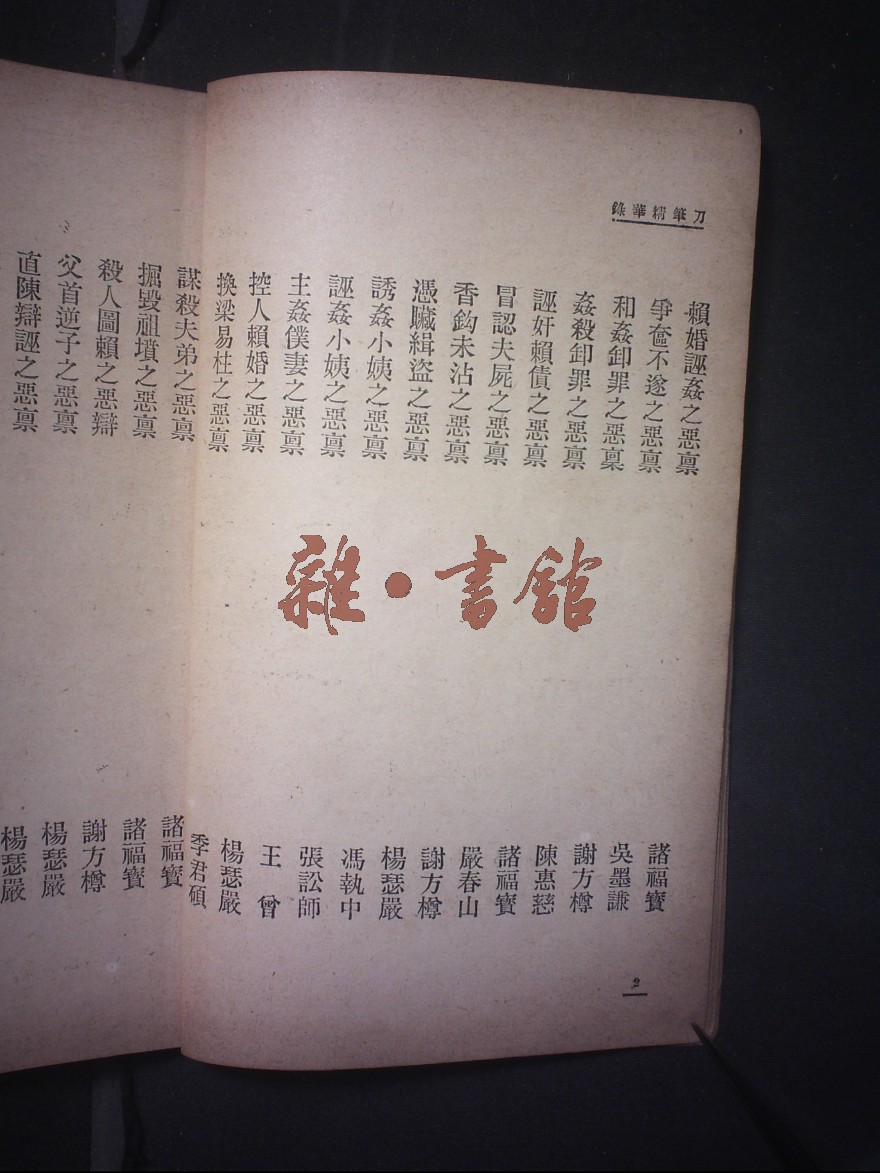 刀筆精華錄
賴婚誣姦之惡禀
諸福寶
爭奩不遂之惡禀
吳墨謙
和姦卸罪之惡禀
謝方樽
姦殺卸罪之惡禀
陳惠慈
誣奸賴債之惡禀
諸福寶
冒認夫屍之惡禀
嚴春山
香鈎未沾之惡禀
謝方樽
憑贜緝盜之惡禀
楊瑟嚴
誘姦小姨之惡禀
馮執中
誣姦小姨之惡禀
張訟師
主姦僕妻之惡禀
王曾
控人賴婚之惡禀
楊瑟嚴
換梁易柱之惡禀
季君碩
謀殺夫弟之惡禀
諸福寶
掘毀祖墳之惡禀
諸福寶
殺人圖賴之惡辯
謝方樽
父首逆子之惡禀
楊瑟嚴
直陳辯誣之惡禀
楊瑟嚴
2
雜·書舘